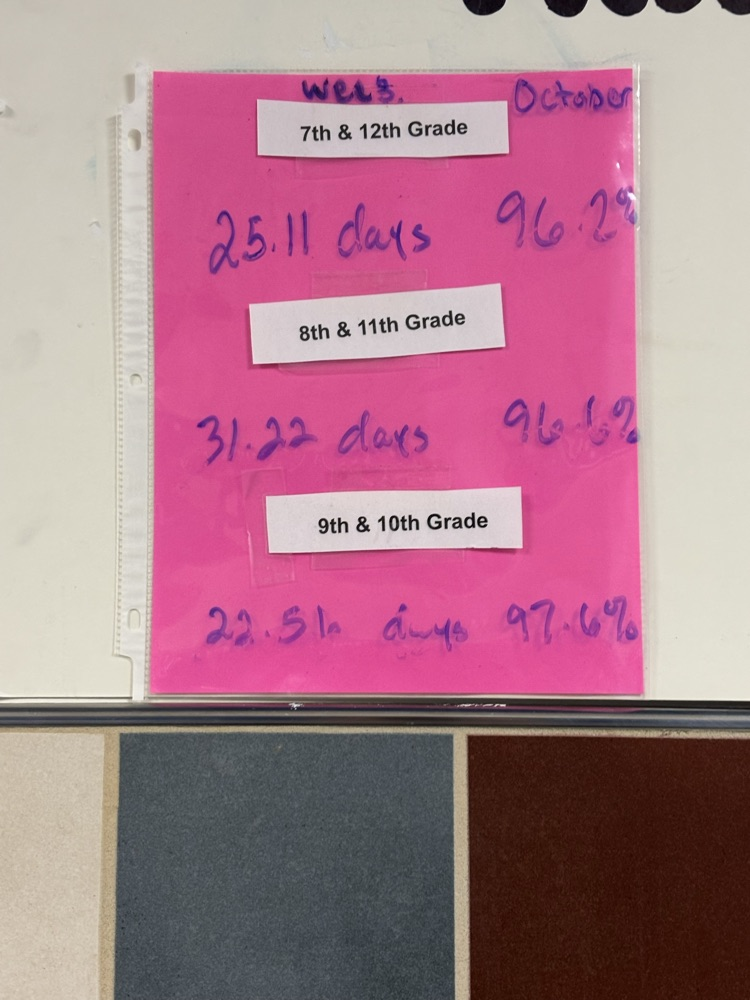 October
7th & 12th Grade
25.11 days 96.2%
8th & 11th Grade
31.22 days 96.6%
9th & 10th Grade
days 97.6%